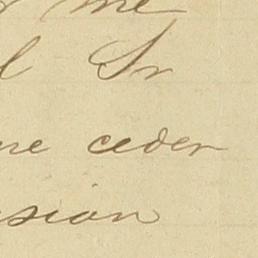 me
l Sr
ne ceder
sion